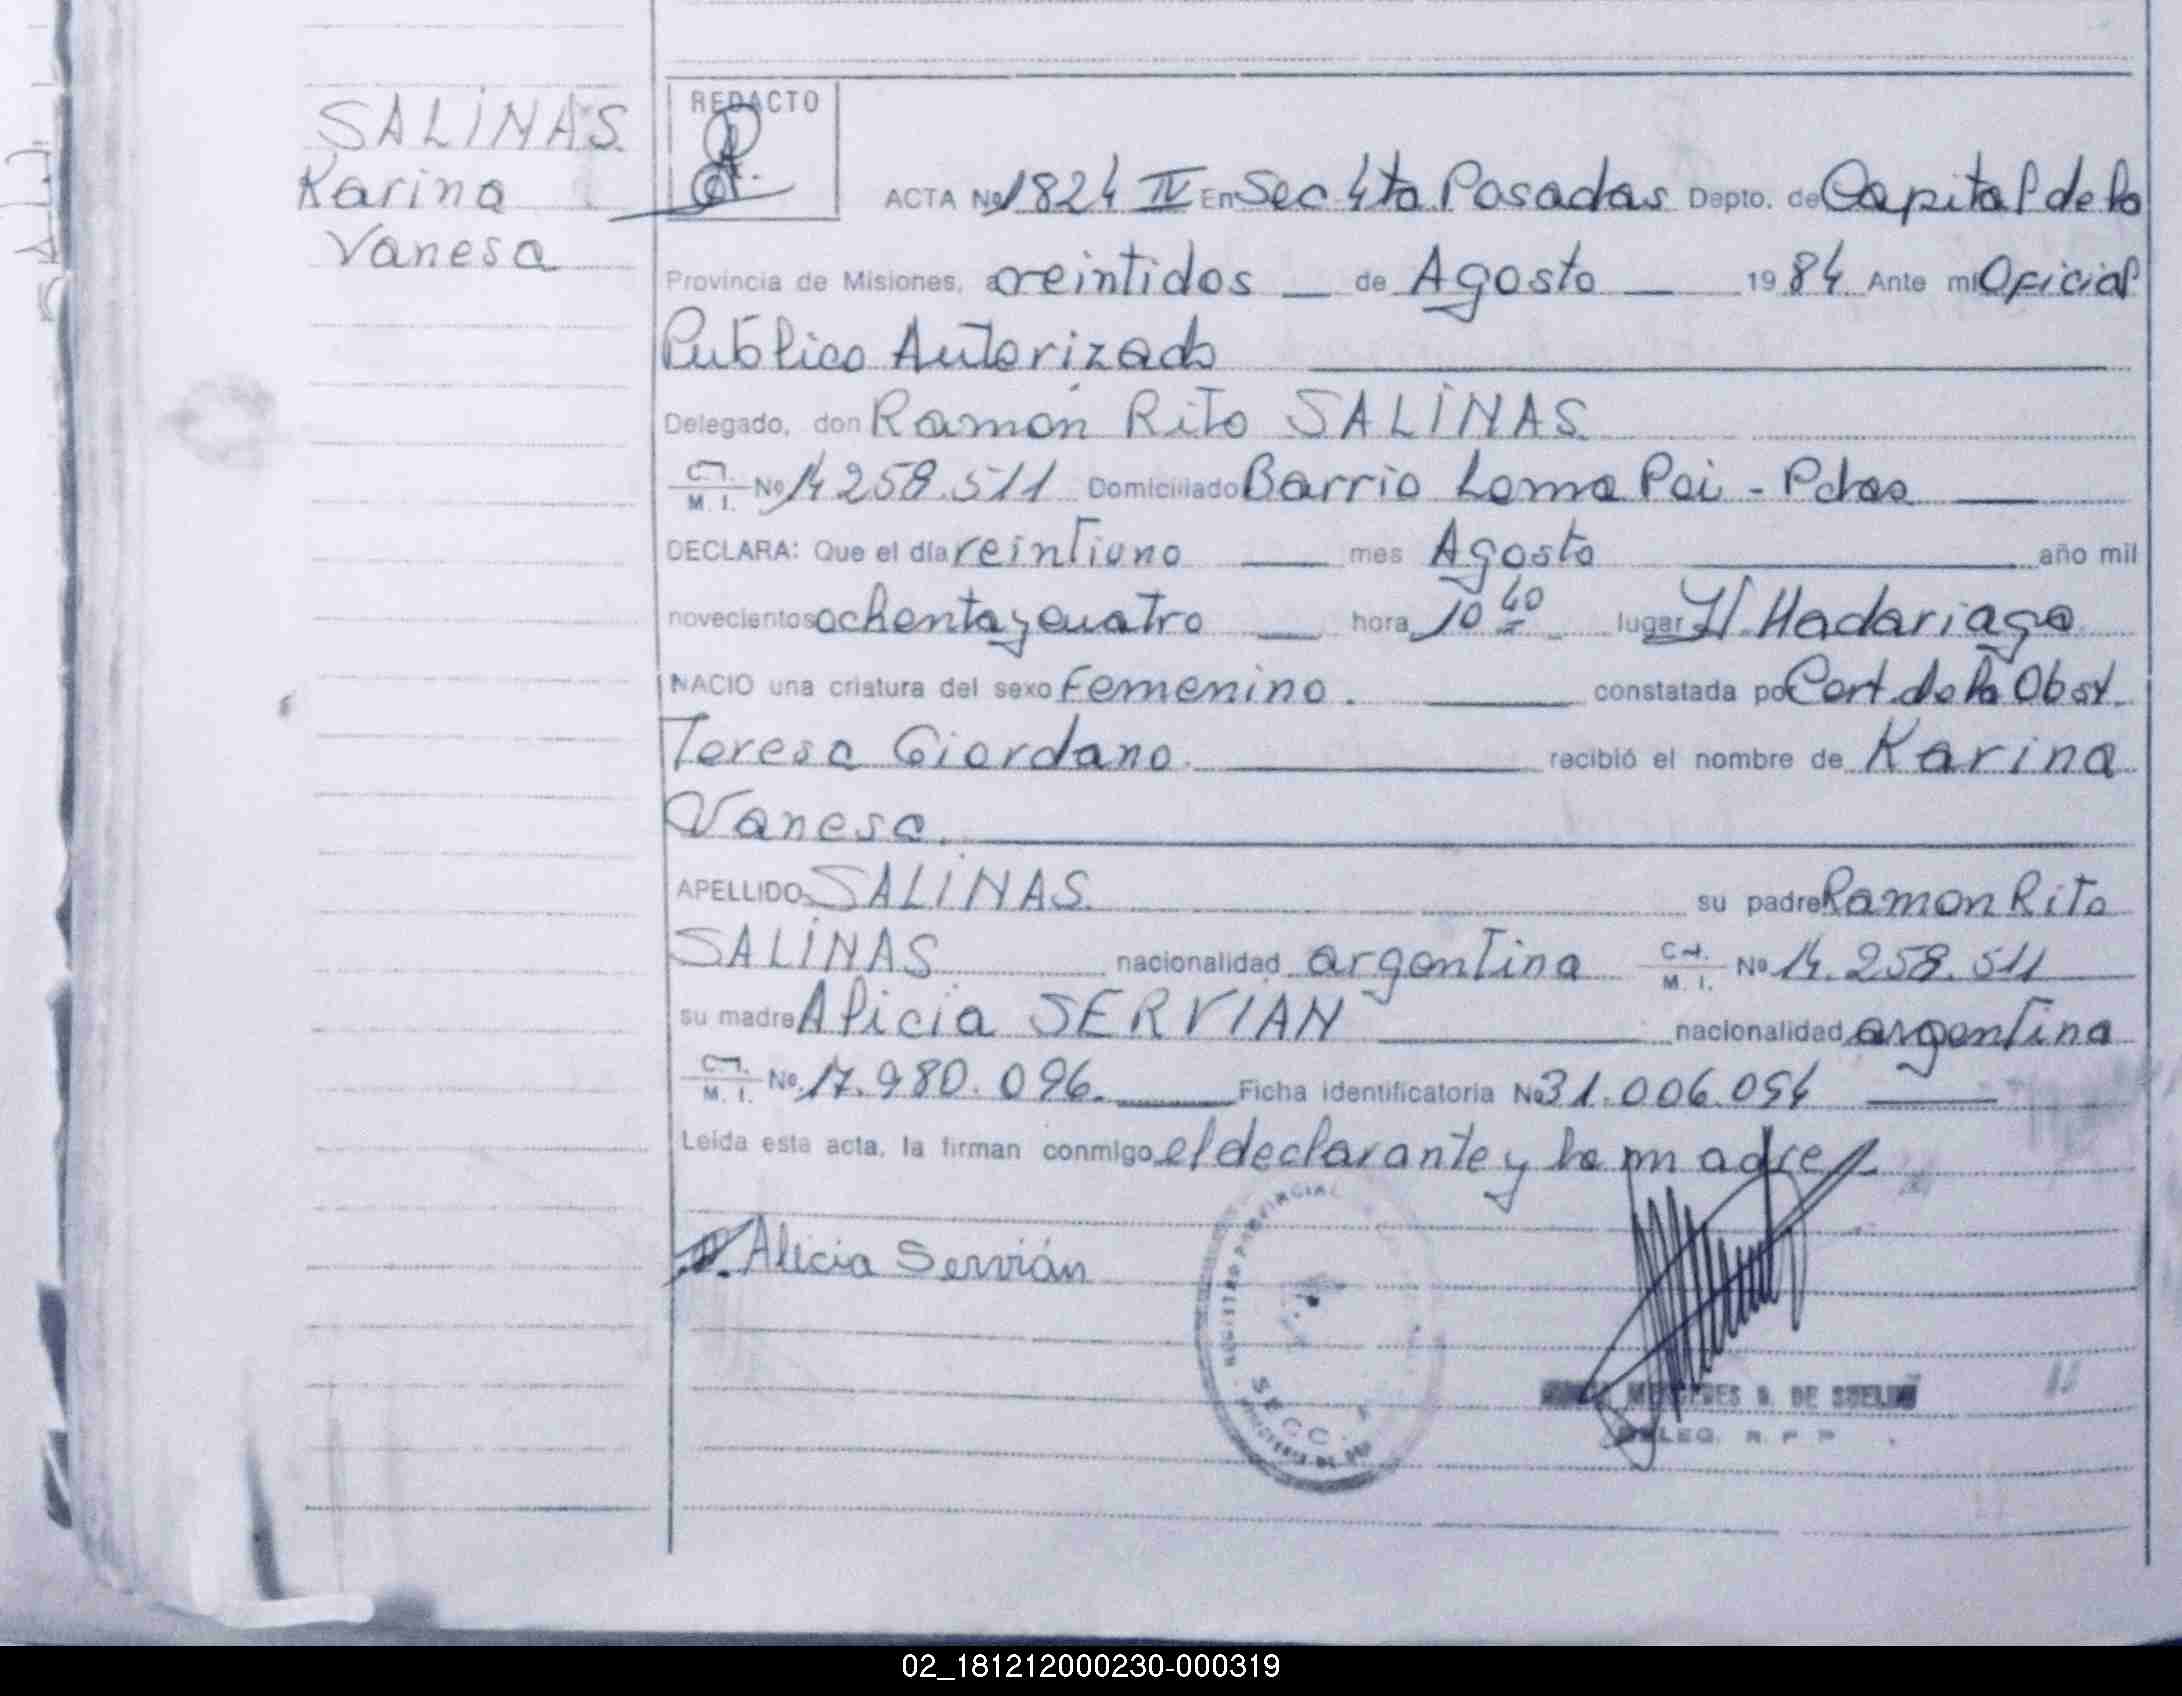 SALINAS
Karina
Vanesa
REDACTO
ACTA Nº 1824 IV En Sec 4ta Posadas Depto. de Capital de la
Provincia de Misiones, a veintidos — de Agosto — 1984 Ante mi Oficial
Publico Autorizado
Delegado, don Ramón Rito SALINAS
C.I. M. I. Nº 14.258.511 Domiciliado Barrio Loma Poi - Pdas
DECLARA: Que el día veintiuno — mes Agosto — año mil
novecientos ochenta y cuatro — hora 10 40 lugar H. Madariaga
NACIO una criatura del sexo Femenino. — constatada por Cert. de la Obst.
Teresa Giordano. — recibió el nombre de Karina
Vanesa.
APELLIDO SALINAS su padre Ramon Rito
SALINAS nacionalidad argentina C.I. M. I. Nº 14.258.511
su madre Alicia SERVIAN — nacionalidad argentina
C.I. M. I. Nº 17.980.096. — Ficha identificatoria Nº 31.006.054 —
Leída esta acta, la firman conmigo el declarante y la madre
Alicia Servián
REGISTRO PROVINCIAL
SECC.
MERCEDES DE
DELEG. R. P. P.
02_181212000230-000319